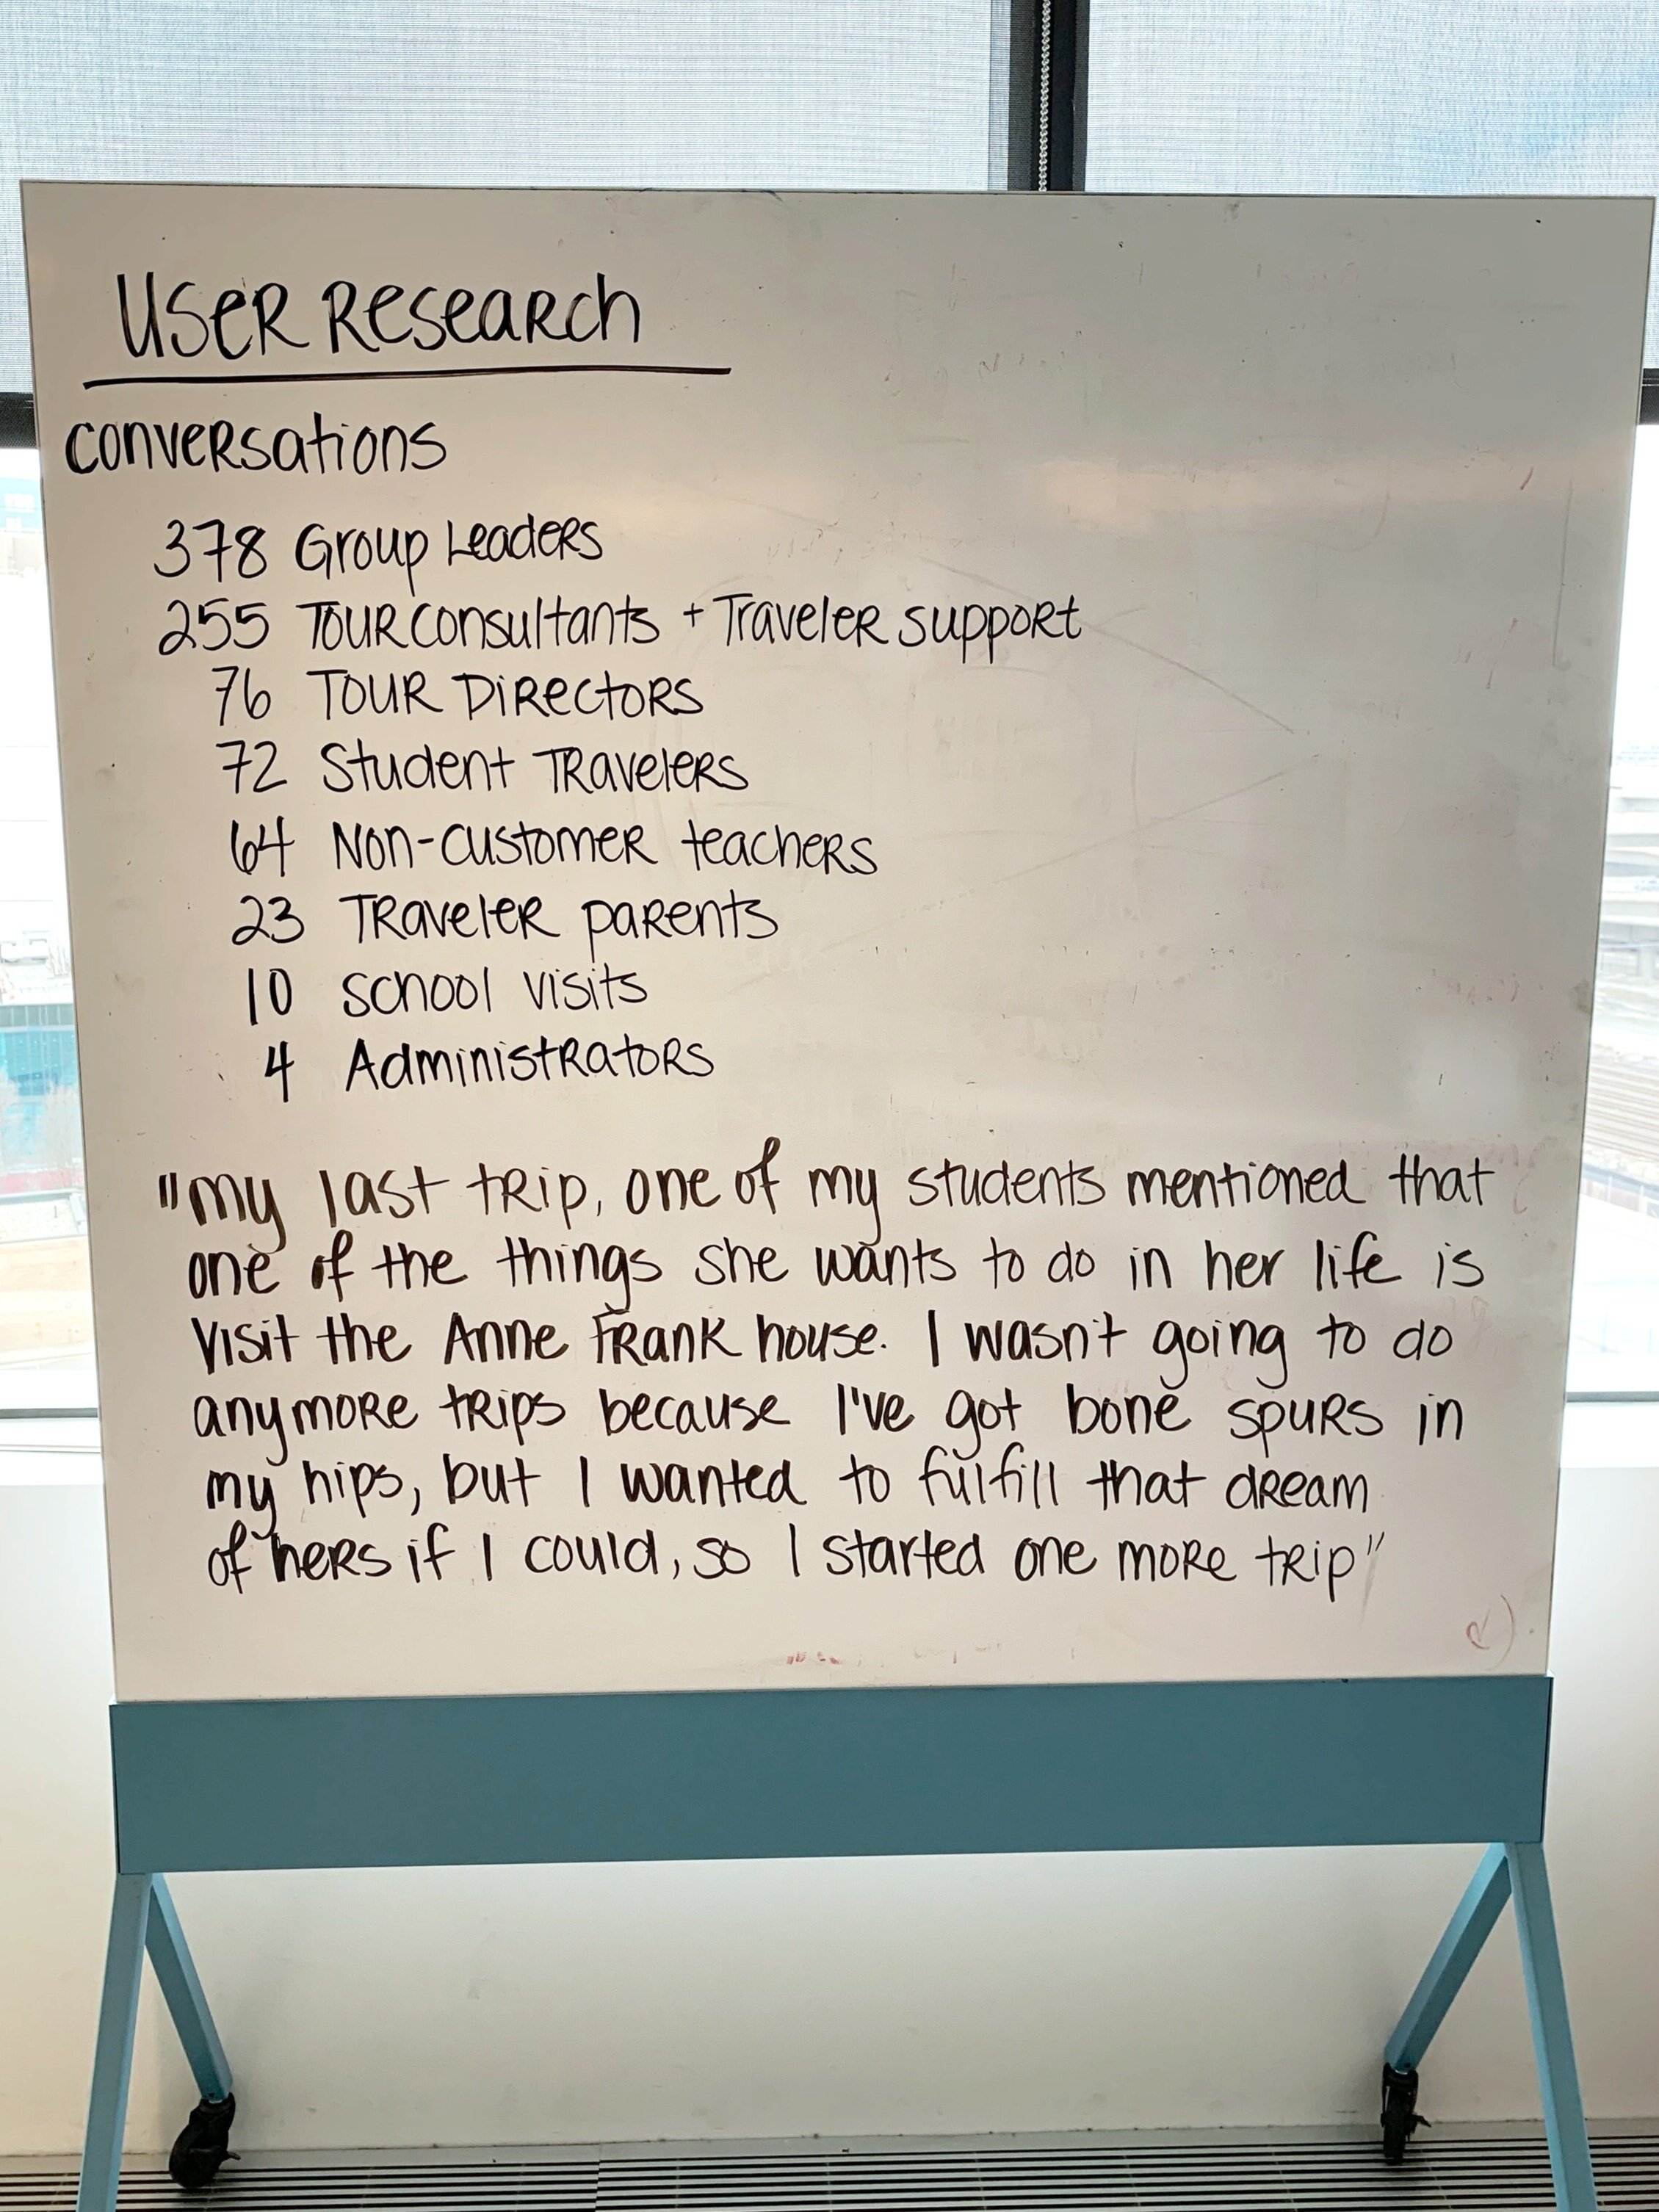 USER RESEARCH
conversations
378 Group Leaders
255 TOUR consultants + Traveler support
76 TOUR DIRECTORS
72 Student TRavelers
64 Non-customer teachers
23 TRaveler parents
10 school visits
4 Administrators
"my last trip, one of my students mentioned that
one of the things she wants to do in her life is
visit the Anne Frank house. I wasn't going to do
anymore trips because I've got bone spurs in
my hips, but I wanted to fulfill that dream
of hers if I could, so I started one more trip"